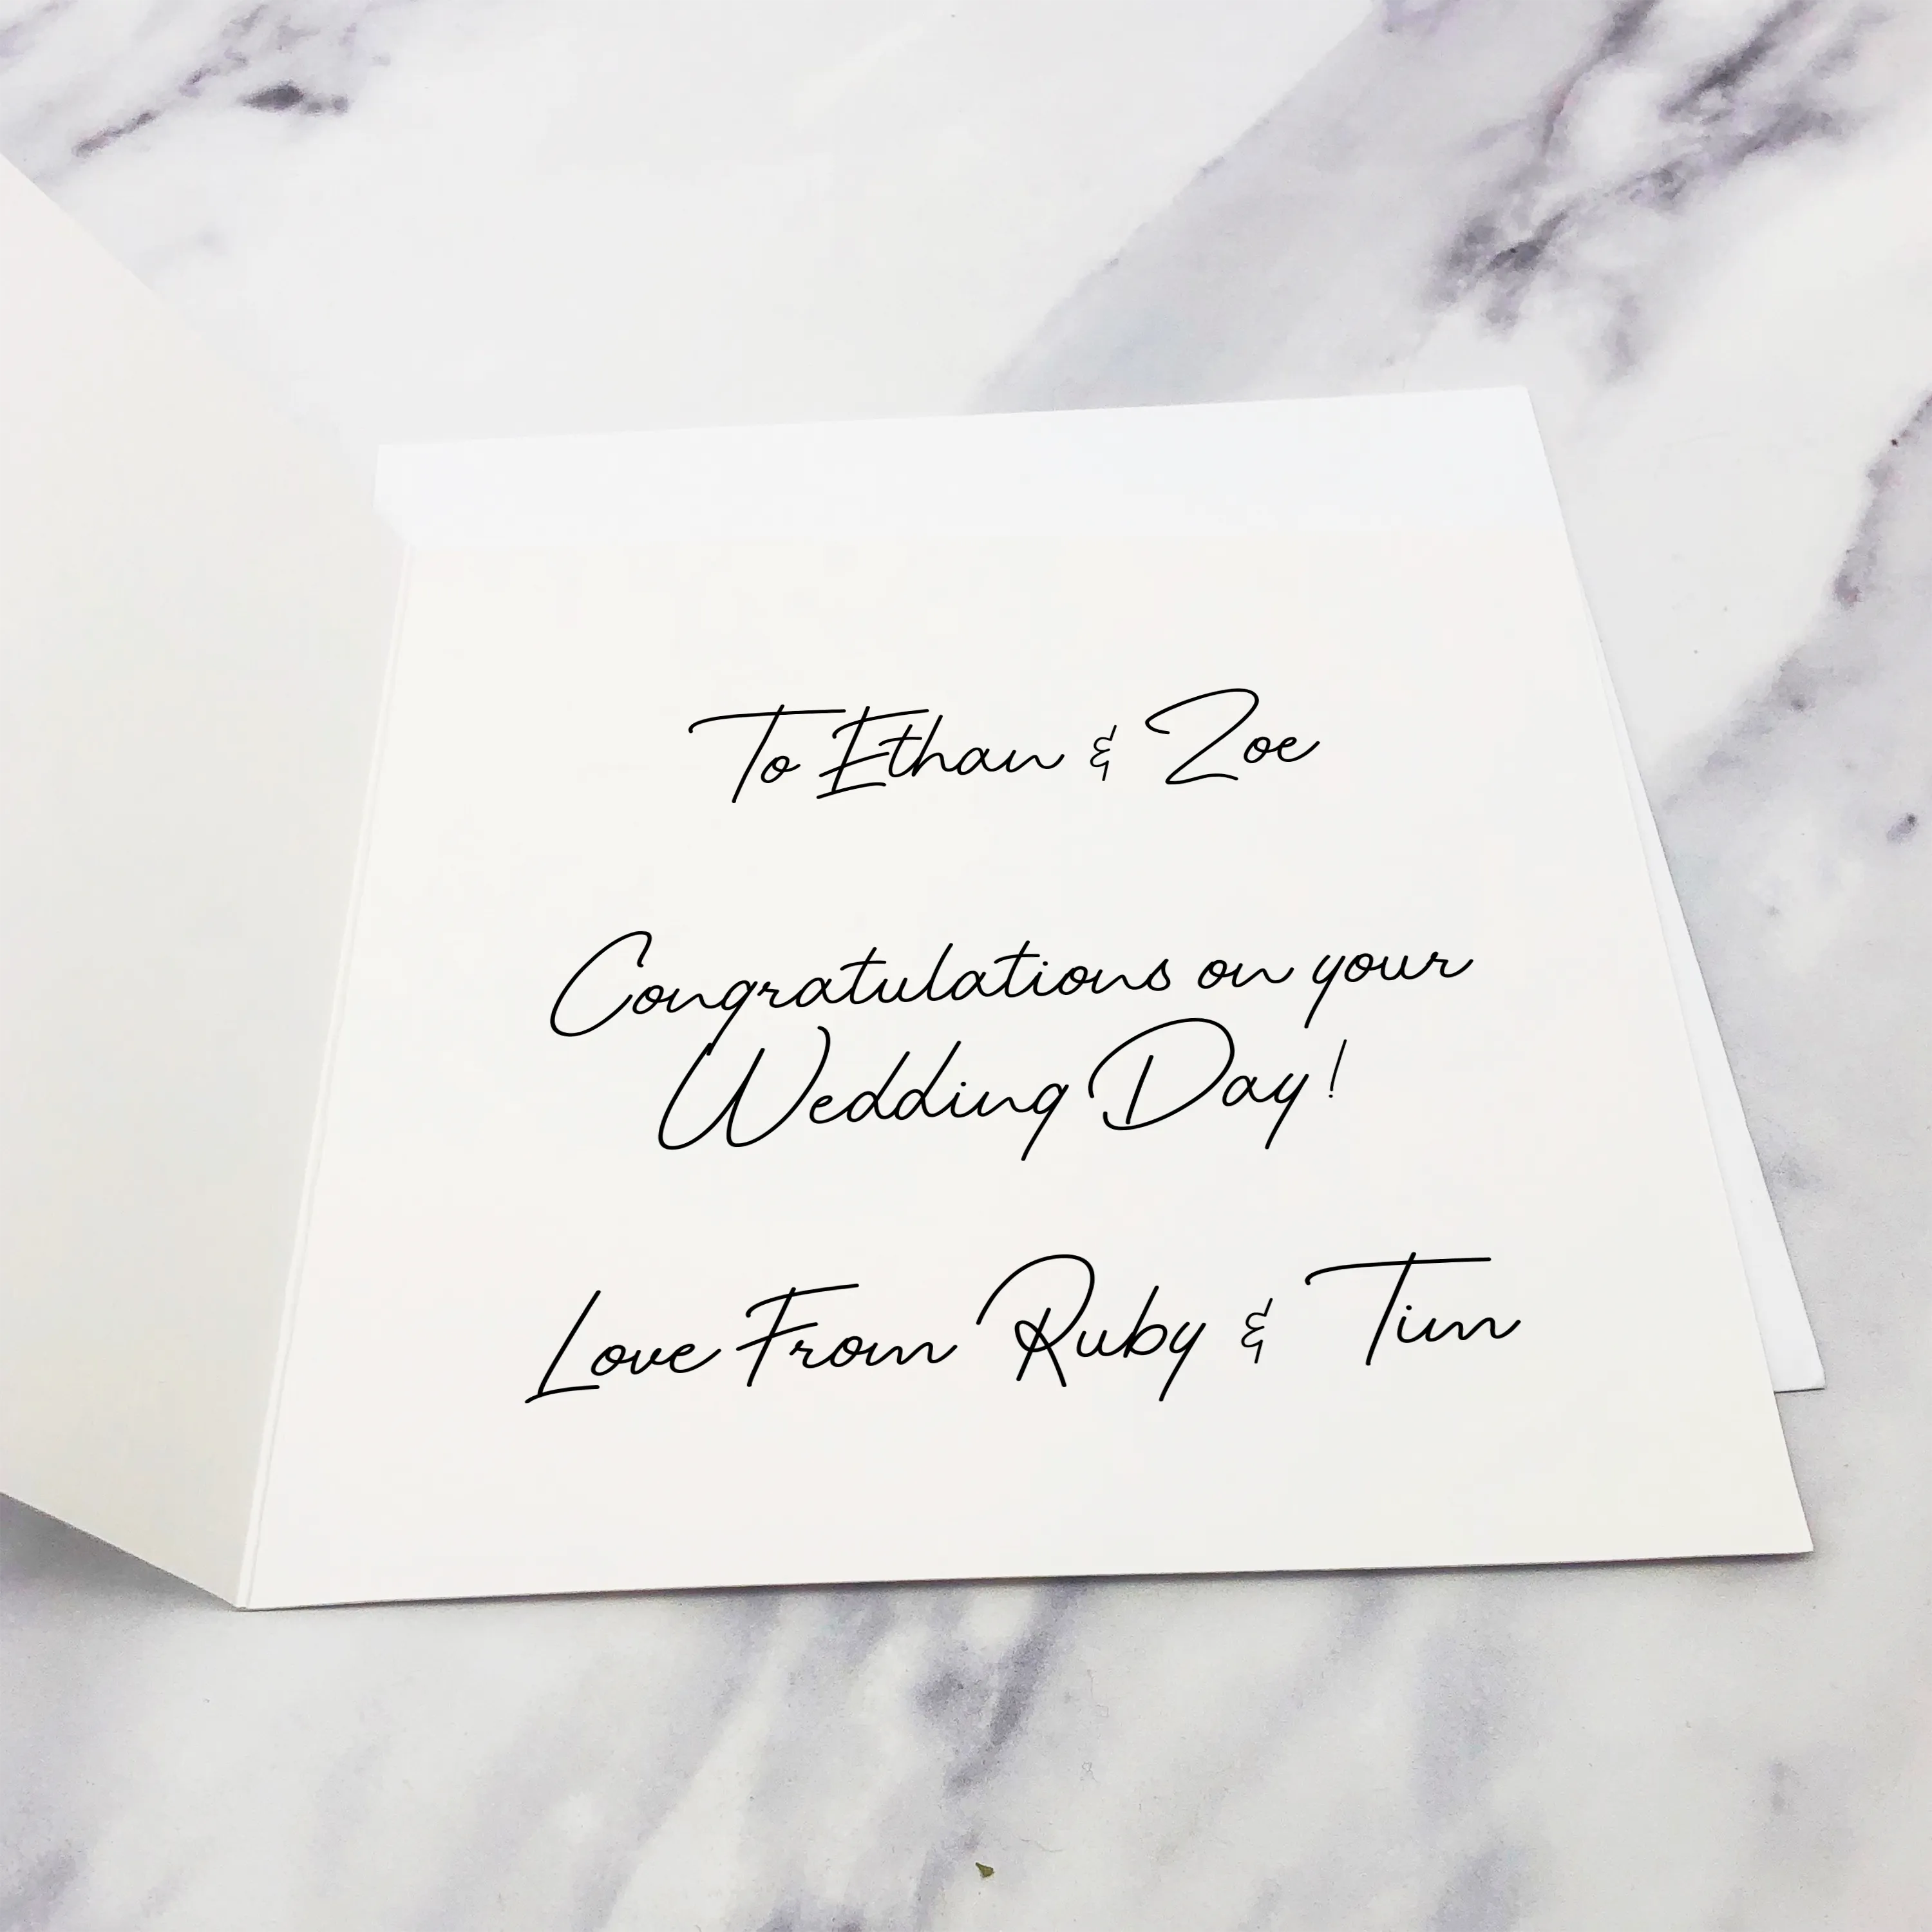 To Ethan & Zoe
Congratulations on your
Wedding Day!
Love From Ruby & Tim